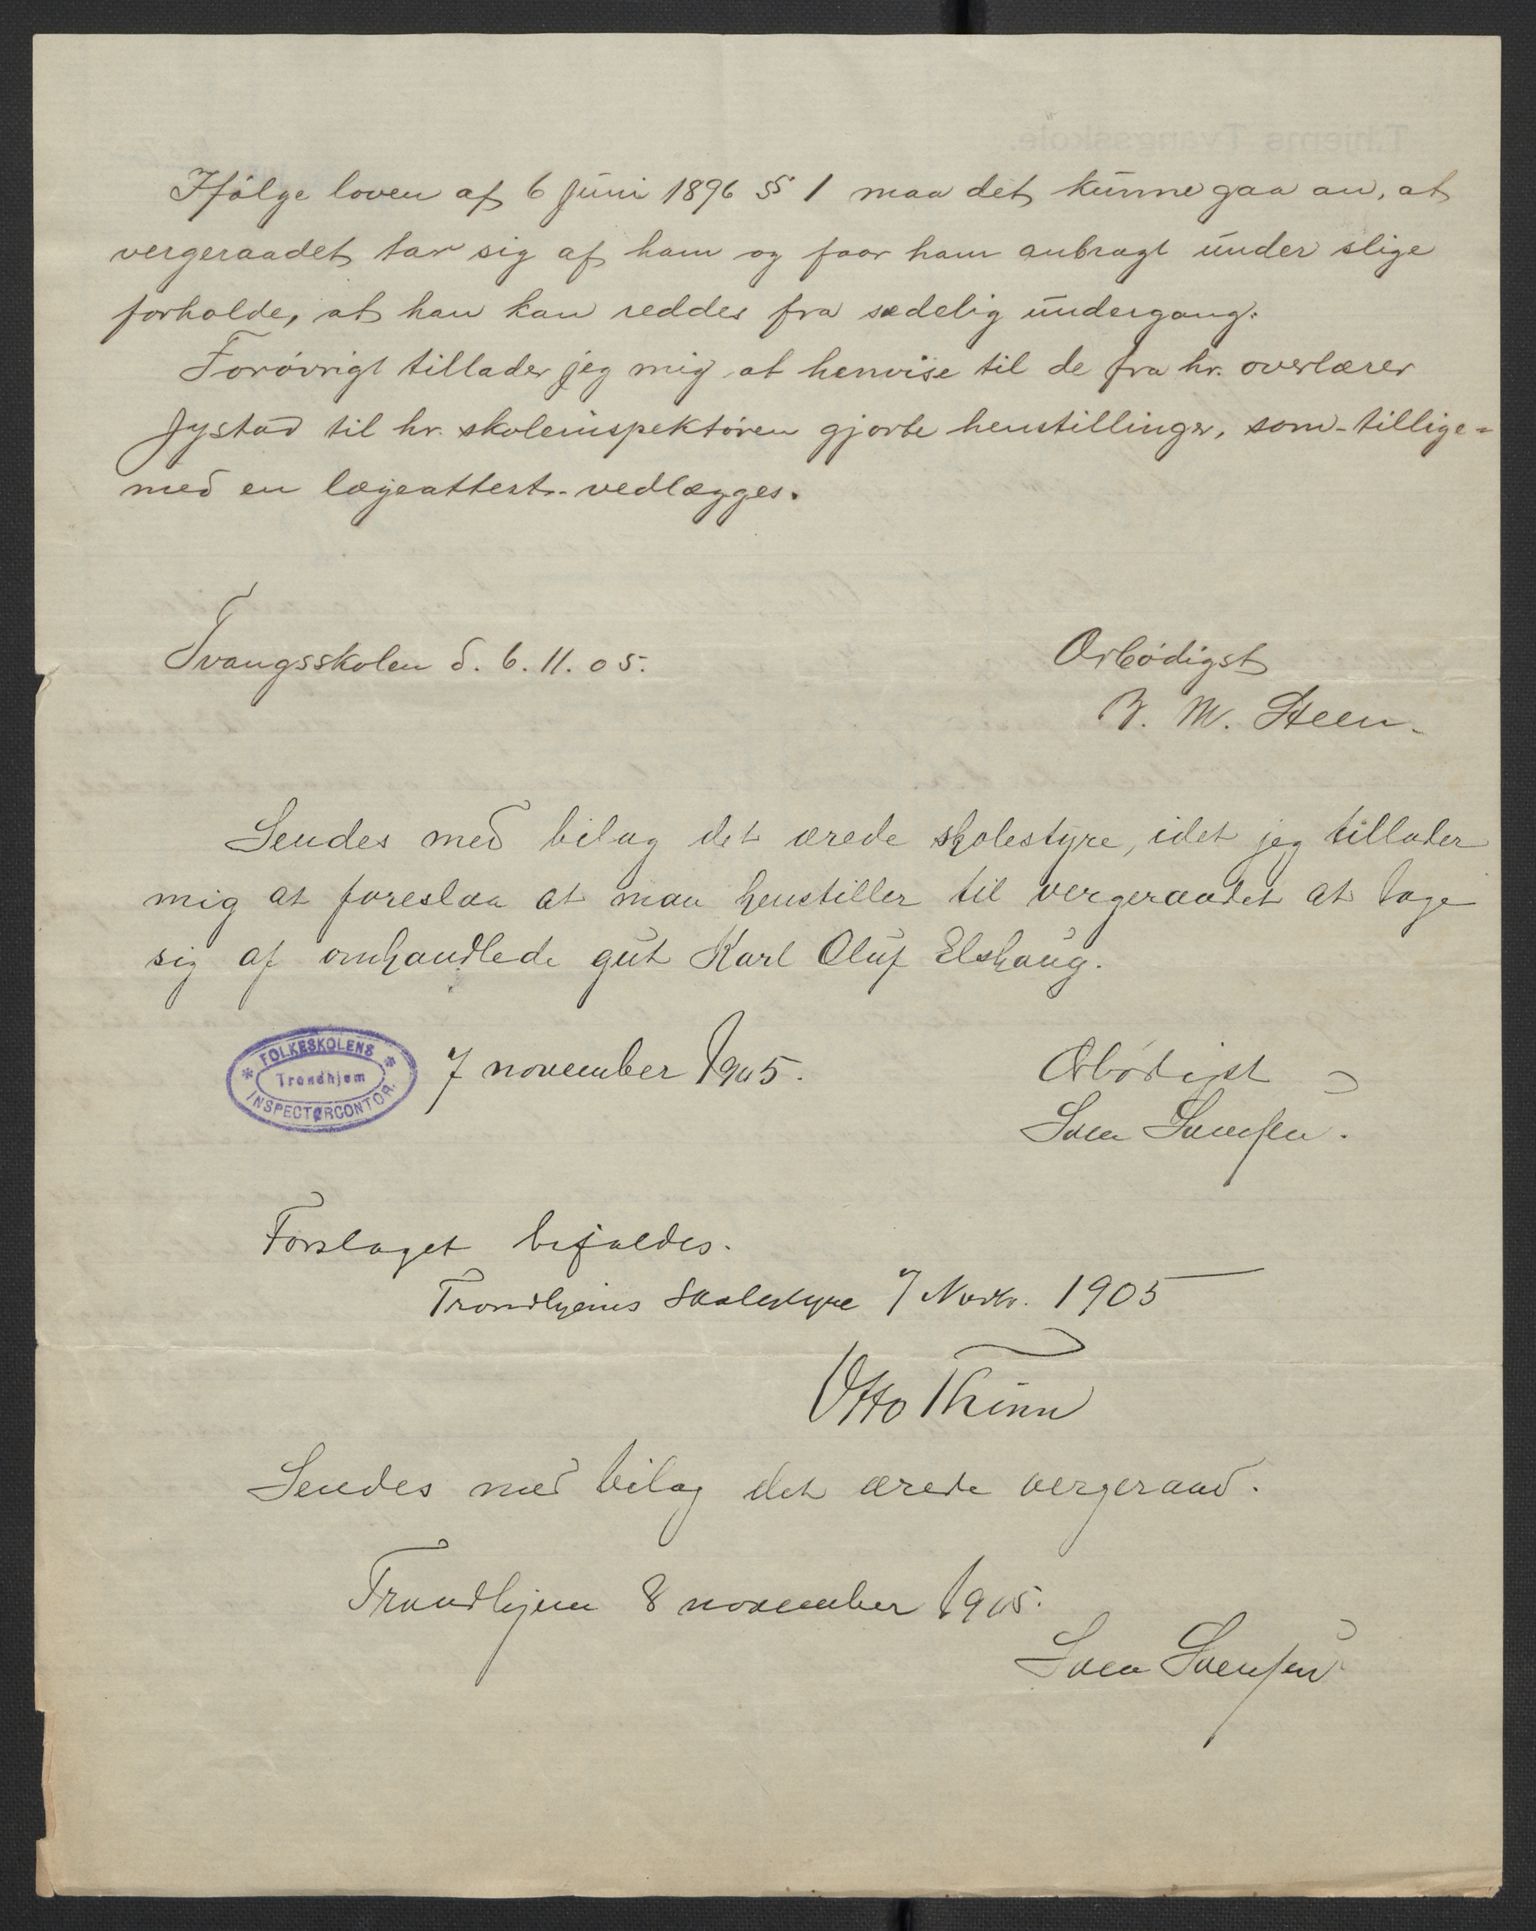 Ifølge loven af 6 juni 1896 § 1 maa det kunne gaa an, at
vergeraadet tar sig af ham og faar ham anbragt under slige
forholde, at han kan reddes fra sædelig undergang.
Forøvrigt tillader jeg mig at henvise til de fra hr. overlærer
Jystad til hr. skoleinspektøren gjorte henstillinger, som tillige=
med en lægeattest vedlægges.
Tvangsskolen d. 6. 11. 05.
Ærbødigst
M. Steen.
Sendes med bilag det ærede skolestyre, idet jeg tillader
mig at foreslaa at man henstiller til vergeraadet at tage
sig af omhandlede gut Karl Oluf Elshaug.
FOLKESKOLENS
Trondhjem
INSPECTØRCONTOR.
7 november 1905.
Ærbødigst
Sven Svensen.
Forslaget bifaldes.
Trondhjems Skolestyre 7 Novbr. 1905
Otto Thinn
Sendes med bilag det ærede vergeraad.
Trondhjem 8 november 1905.
Sven Svensen
Thjems Tvangsskole.